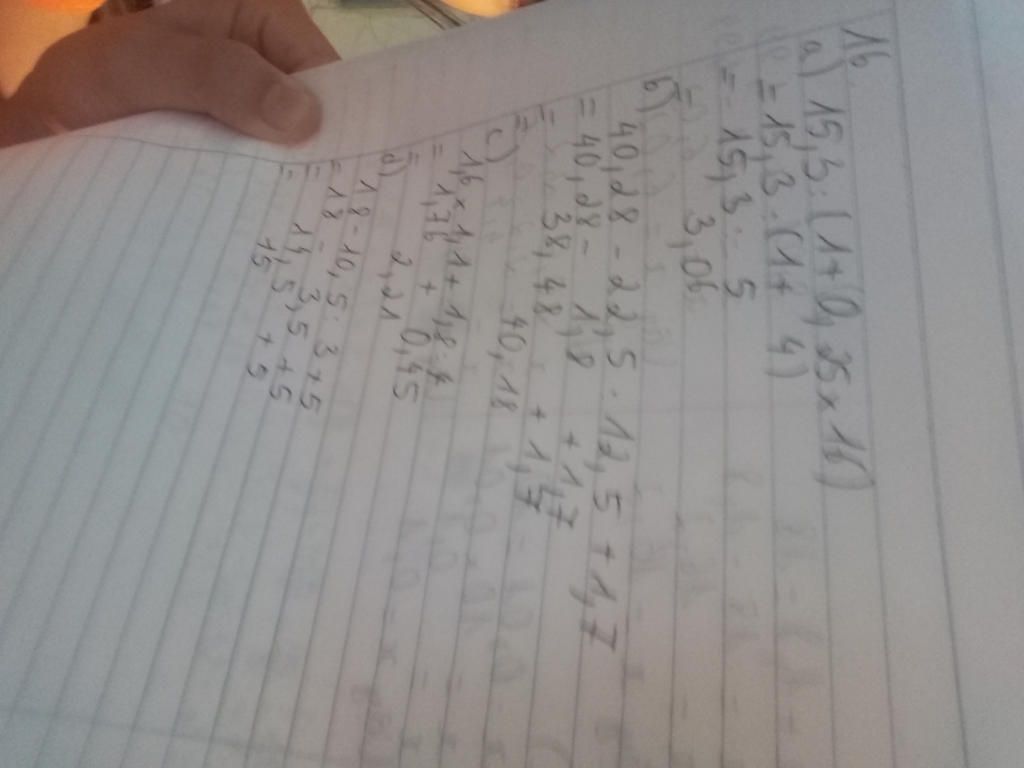 16
a) 15,3 : (1 + 0,25 × 16)
= 15,3 : (1 + 4)
= 15,3 : 5
= 3,06
b) 40,28 - 22,5 : 12,5 + 1,7
= 40,28 - 1,8 + 1,7
= 38,48 + 1,7
= 40,18
c) 1,6 × 1,1 + 1,8 :
= 1,76 + 0,45
= 2,21
d) 18 - 10,5 : 3 + 5
= 18 - 3,5 + 5
= 14,5 + 5
=